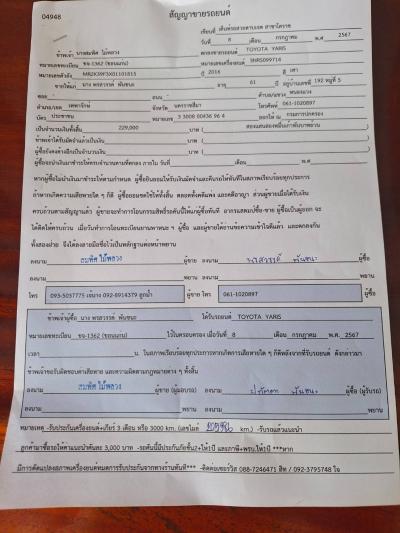 04948
สัญญาขายรถยนต์
เขียนที่ เต็นท์รถสวยตาบเจต สาขาโคราช
วันที่ 8 เดือน กรกฎาคม พ.ศ. 2567
ข้าพเจ้า นายสมทิศ ไม้พลวง ตกลงขายรถยนต์ TOYOTA YARIS
หมายเลขทะเบียน ขจ-1362 (ขอนแก่น) หมายเลขเครื่องยนต์ 3NRS099714
หมายเลขตัวถัง MR2K39F3X01101815 ปี 2016 สี เทา
ขายให้แก่ นาง พรสวรรค์ พันชนะ อายุ 61 ปี อยู่บ้านเลขที่ 192 หมู่ที่ 5
ซอย - ถนน - ตำบล/แขวง หนองแวง
อำเภอ/เขต เทพารักษ์ จังหวัด นครราชสีมา โทรศัพท์ 061-1020897
บัตร ประชาชน หมายเลข 3 3008 00436 96 4 ออกให้ ณ กรมการปกครอง
เป็นจำนวนเงินทั้งสิ้น 229,000 บาท ( สองแสนสองหมื่นเก้าพันบาทถ้วน )
ข้าพเจ้าได้รับมัดจำแล้วเป็นเงิน บาท ( )
ผู้ซื้อยังคงค้างอีกเป็นจำนวนเงิน บาท ( )
ผู้ซื้อจะนำเงินมาชำระให้ครบจำนวนตามที่ตกลง ภายใน วันที่ เดือน พ.ศ
หากผู้ซื้อไม่นำเงินมาชำระให้ตามกำหนด ผู้ซื้อยินยอมให้ริบเงินมัดจำและคืนรถให้ทันทีในสภาพเรียบร้อยทุกประการ
ถ้าหากเกิดความเสียหายใด ๆ ก็ดี ผู้ซื้อยอมชดใช้ให้ทั้งสิ้น ตลอดทั้งคดีแพ่ง และคดีอาญา ส่วนผู้ขายเมื่อได้รับเงิน
ครบถ้วนตามสัญญาแล้ว ผู้ขายจะทำการโอนกรรมสิทธิ์รถคันนี้ให้แก่ผู้ซื้อทันที อากรแสตมป์ซื้อ-ขาย ผู้ซื้อเป็นผู้ออก จะ
ได้ติดให้ครบถ้วน เมื่อวันทำการโอนทะเบียนยานพาหนะ ฯ ผู้ซื้อ และผู้ขายโดยอ่านข้อความเข้าใจดีแล้ว และตกลงกัน
ทั้งสองฝ่าย จึงได้ลงลายมือชื่อไว้เป็นหลักฐานต่อหน้าพยาน
ลงนาม สมทิศ ไม้พลวง ผู้ขาย ลงนาม พรสวรรค์ พันชนะ ผู้ซื้อ
ลงนาม พยาน ลงนาม พยาน
โทร 093-5037775 เจนาง 092-6914379 ลูกน้ำ ผู้ขาย โทร 061-1020897 ผู้ซื้อ
ข้าพเจ้าผู้ซื้อ นาง พรสวรรค์ พันชนะ ได้รับรถยนต์ TOYOTA YARIS
หมายเลขทะเบียน ขจ-1362 (ขอนแก่น) ไว้ในครอบครอง เมื่อวันที่ 8 เดือน กรกฎาคม พ.ศ. 2567
เวลา น. ในสภาพเรียบร้อยทุกประการหากเกิดการเสียหายใด ๆ ก็ดีหลังจากที่รับรถยนต์ ดังกล่าวมา
ข้าพเจ้าขอรับผิดชอบค่าเสียหาย และความผิดตามกฎหมายต่าง ๆ ทั้งสิ้น
ลงนาม สมทิศ ไม้พลวง ผู้ขาย (ผู้มอบรถ) ลงนาม พันชนะ ผู้ซื้อ (ผู้รับรถ)
ลงนาม พยาน ลงนาม พยาน
หมายเหตุ -รับประกันเครื่องยนต์+เกียร์ 3 เดือน หรือ 3000 km. (เลขไมล์ km.) -รับรถแล้วแนะนำ
ลูกค้ามาซื้อรถให้ค่าแนะนำคันละ 3,000 บาท -รถคันนี้มีประกันภัยชั้น2+ให้1ปี และภาษี+พรบ.ให้1ปี ***หาก
มีการดัดแปลงสภาพเครื่องยนต์หมดการรับประกันจากทางร้านทันที*** -ติดต่อเซอร์วิส 088-7246471 สิท / 092-3795748 ใจ